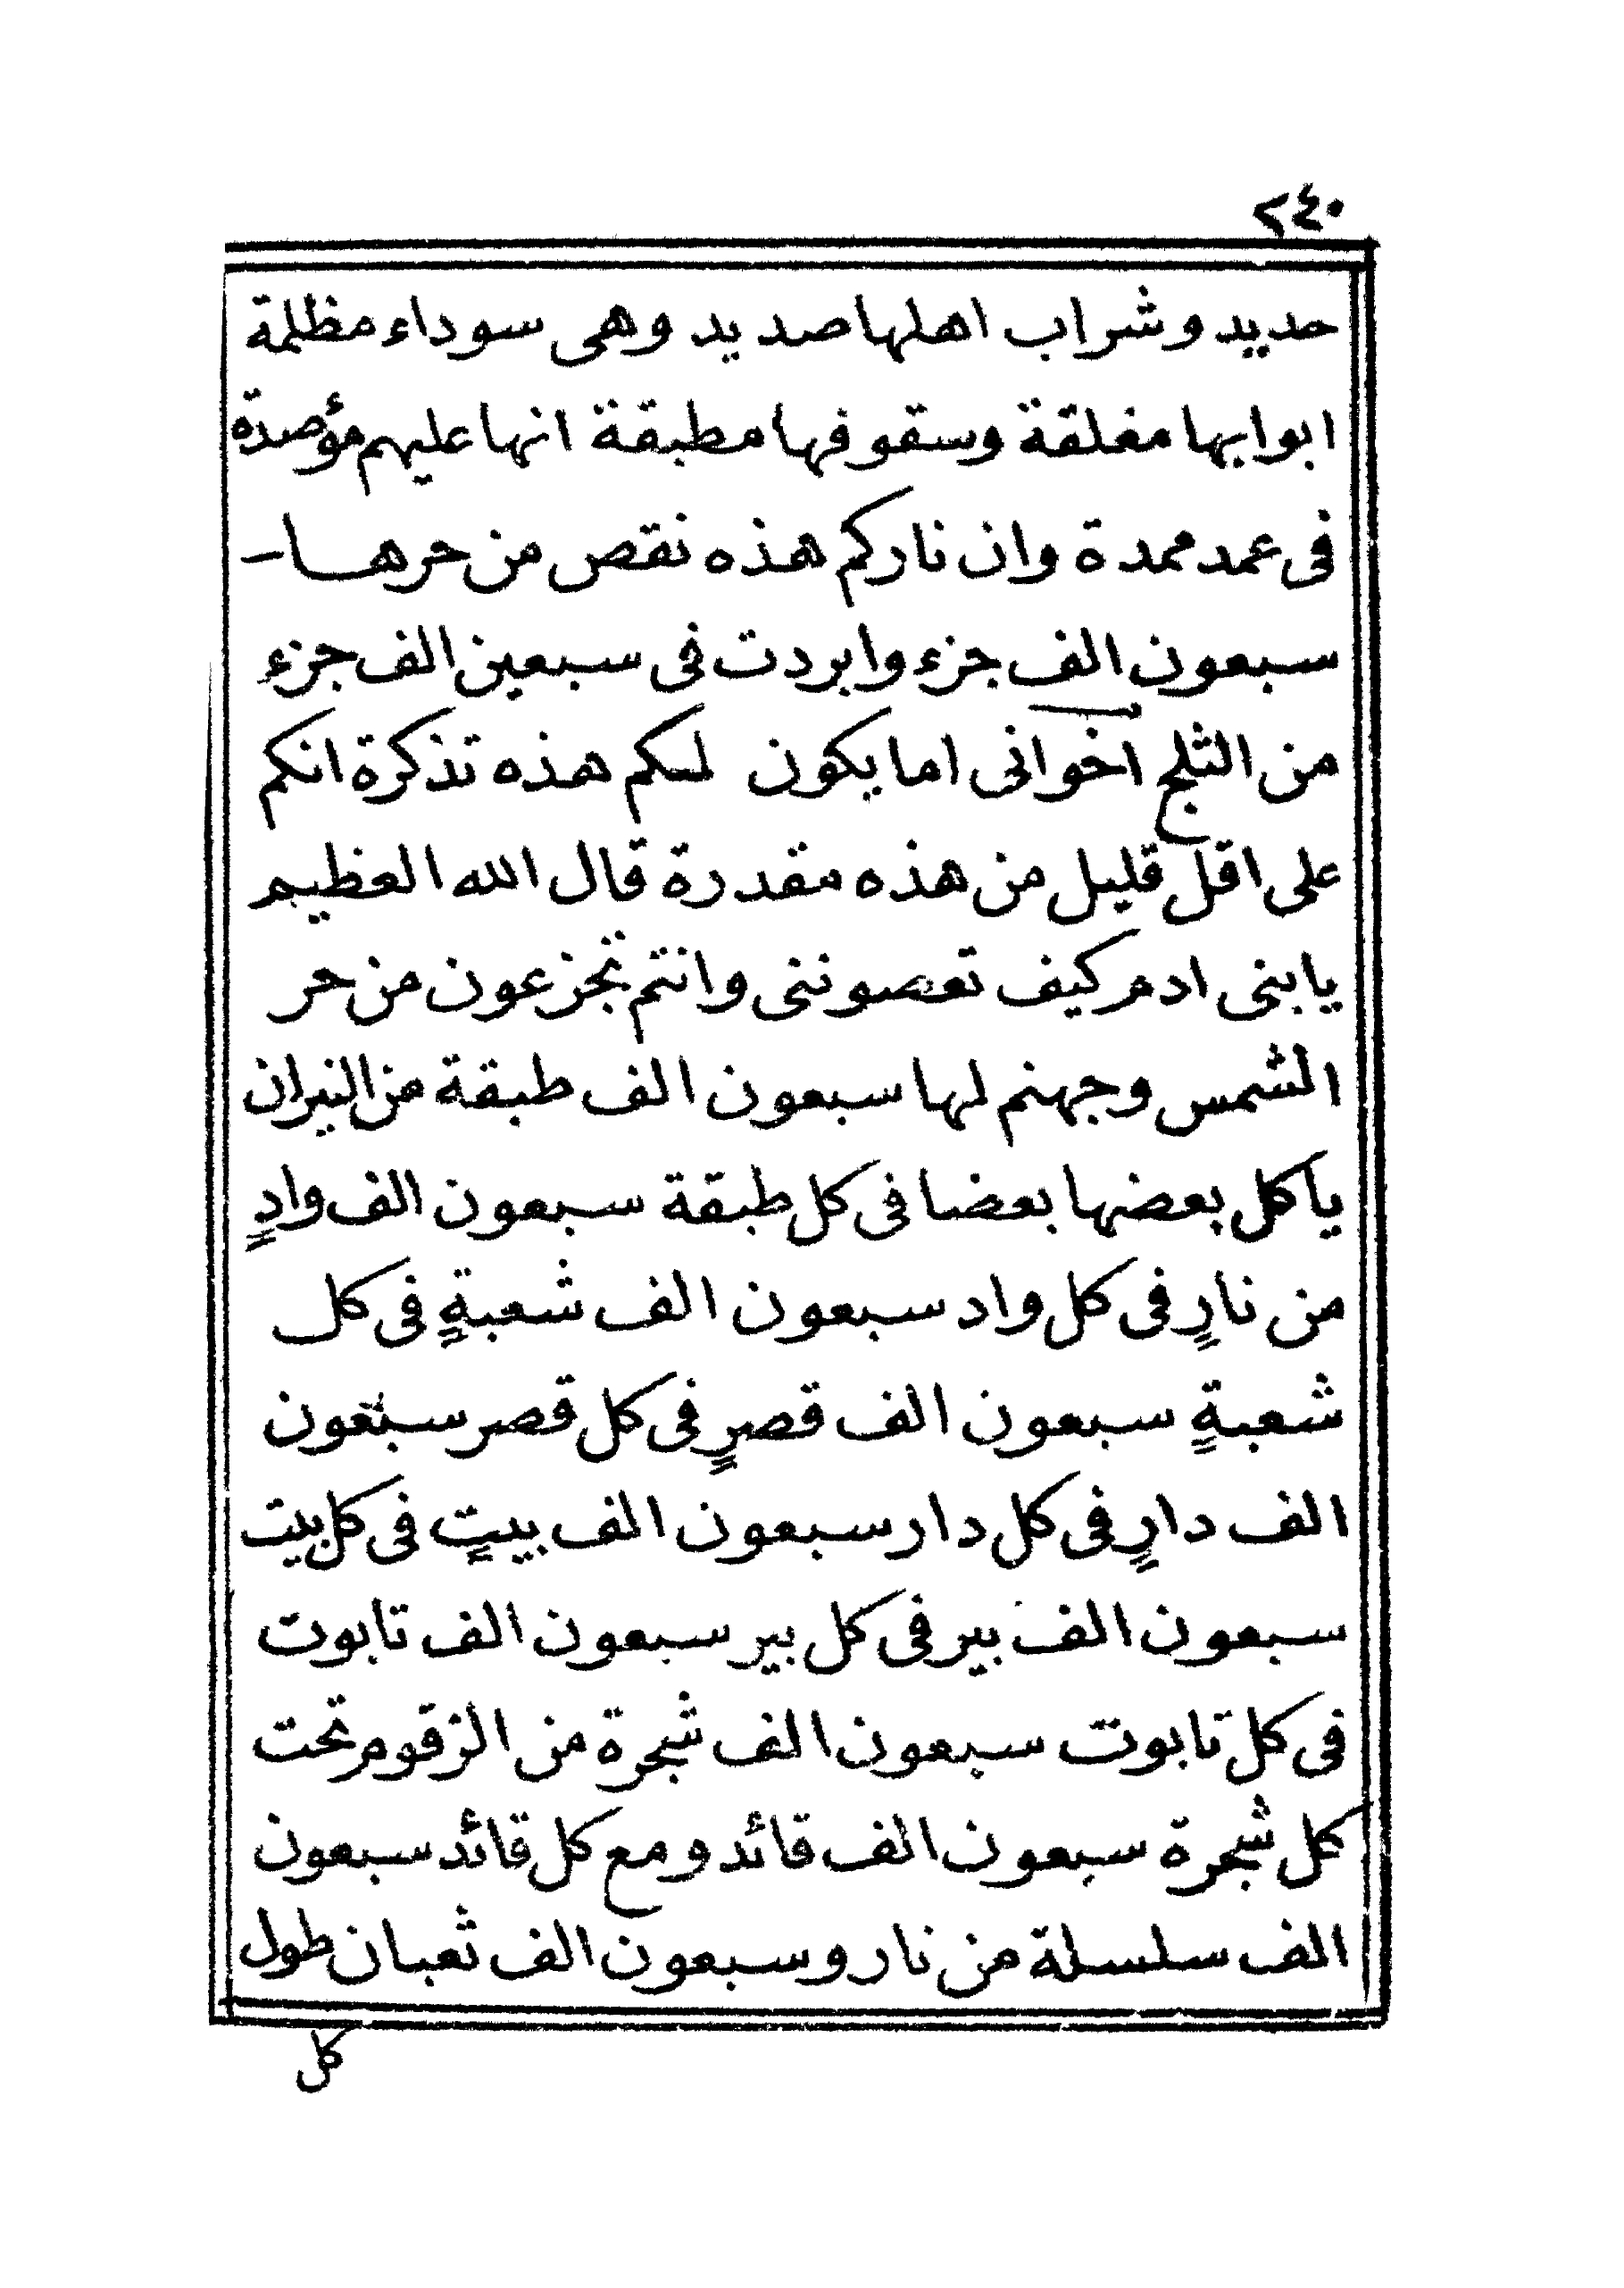 ٢٤٠
حديد وشراب اهلها صديد وهى سوداء مظلمة
ابوابها مغلقة وسقوفها مطبقة انها عليهم مؤصدة
فى عمد ممددة وان ناركم هذه نقص من حرها
سبعون الف جزء وابردت فى سبعين الف جزء
من الثلج اخوانى اما يكون لكم هذه تذكرة انكم
على اقل قليل من هذه مقدرة قال الله العظيم
يابنى ادم كيف تعصوننى وانتم تجزعون من حر
الشمس وجهنم لها سبعون الف طبقة من النيران
ياكل بعضها بعضا فى كل طبقة سبعون الف وادٍ
من نارٍ فى كل واد سبعون الف شعبةٍ فى كل
شعبةٍ سبعون الف قصرٍ فى كل قصر سبعون
الف دارٍ فى كل دار سبعون الف بيتٍ فى كل بيت
سبعون الف بير فى كل بير سبعون الف تابوت
فى كل تابوت سبعون الف شجرة من الزقوم تحت
كل شجرة سبعون الف قائد ومع كل قائد سبعون
الف سلسلة من نار وسبعون الف ثعبان طول
كل